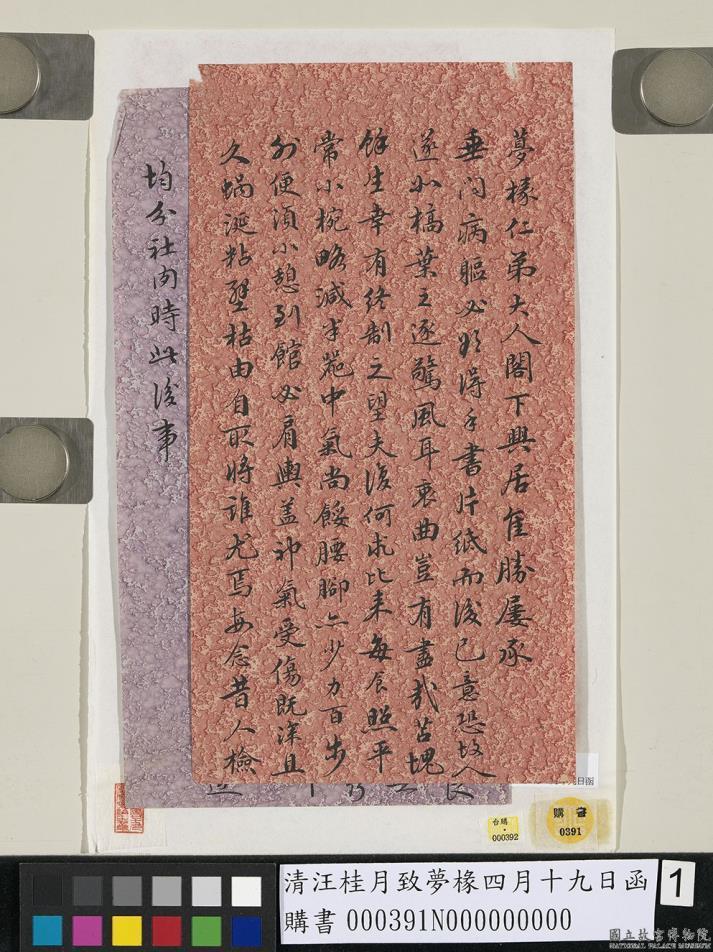 夢椽仁弟大人閣下興居隹勝屢承
垂问病軀必欲得手書片紙而後已意恐故人
遂如槁葉之逐驚風耳衷曲豈有盡哉苫塊
餘生幸有终制之望夫復何求比来每食照平
常小椀略減半茺中氣尚餒腰腳亦少力百步
外便須小憩到館必肩輿盖神氣受傷既深且
久蝸涎粘壁枯由自取將誰尤焉每念昔人檢
均分社肉時此後事
日函
台購
000392
購書
0391
清汪桂月致夢椽四月十九日函
購書 000391N000000000
1
國立故宮博物院
NATIONAL PALACE MUSEUM